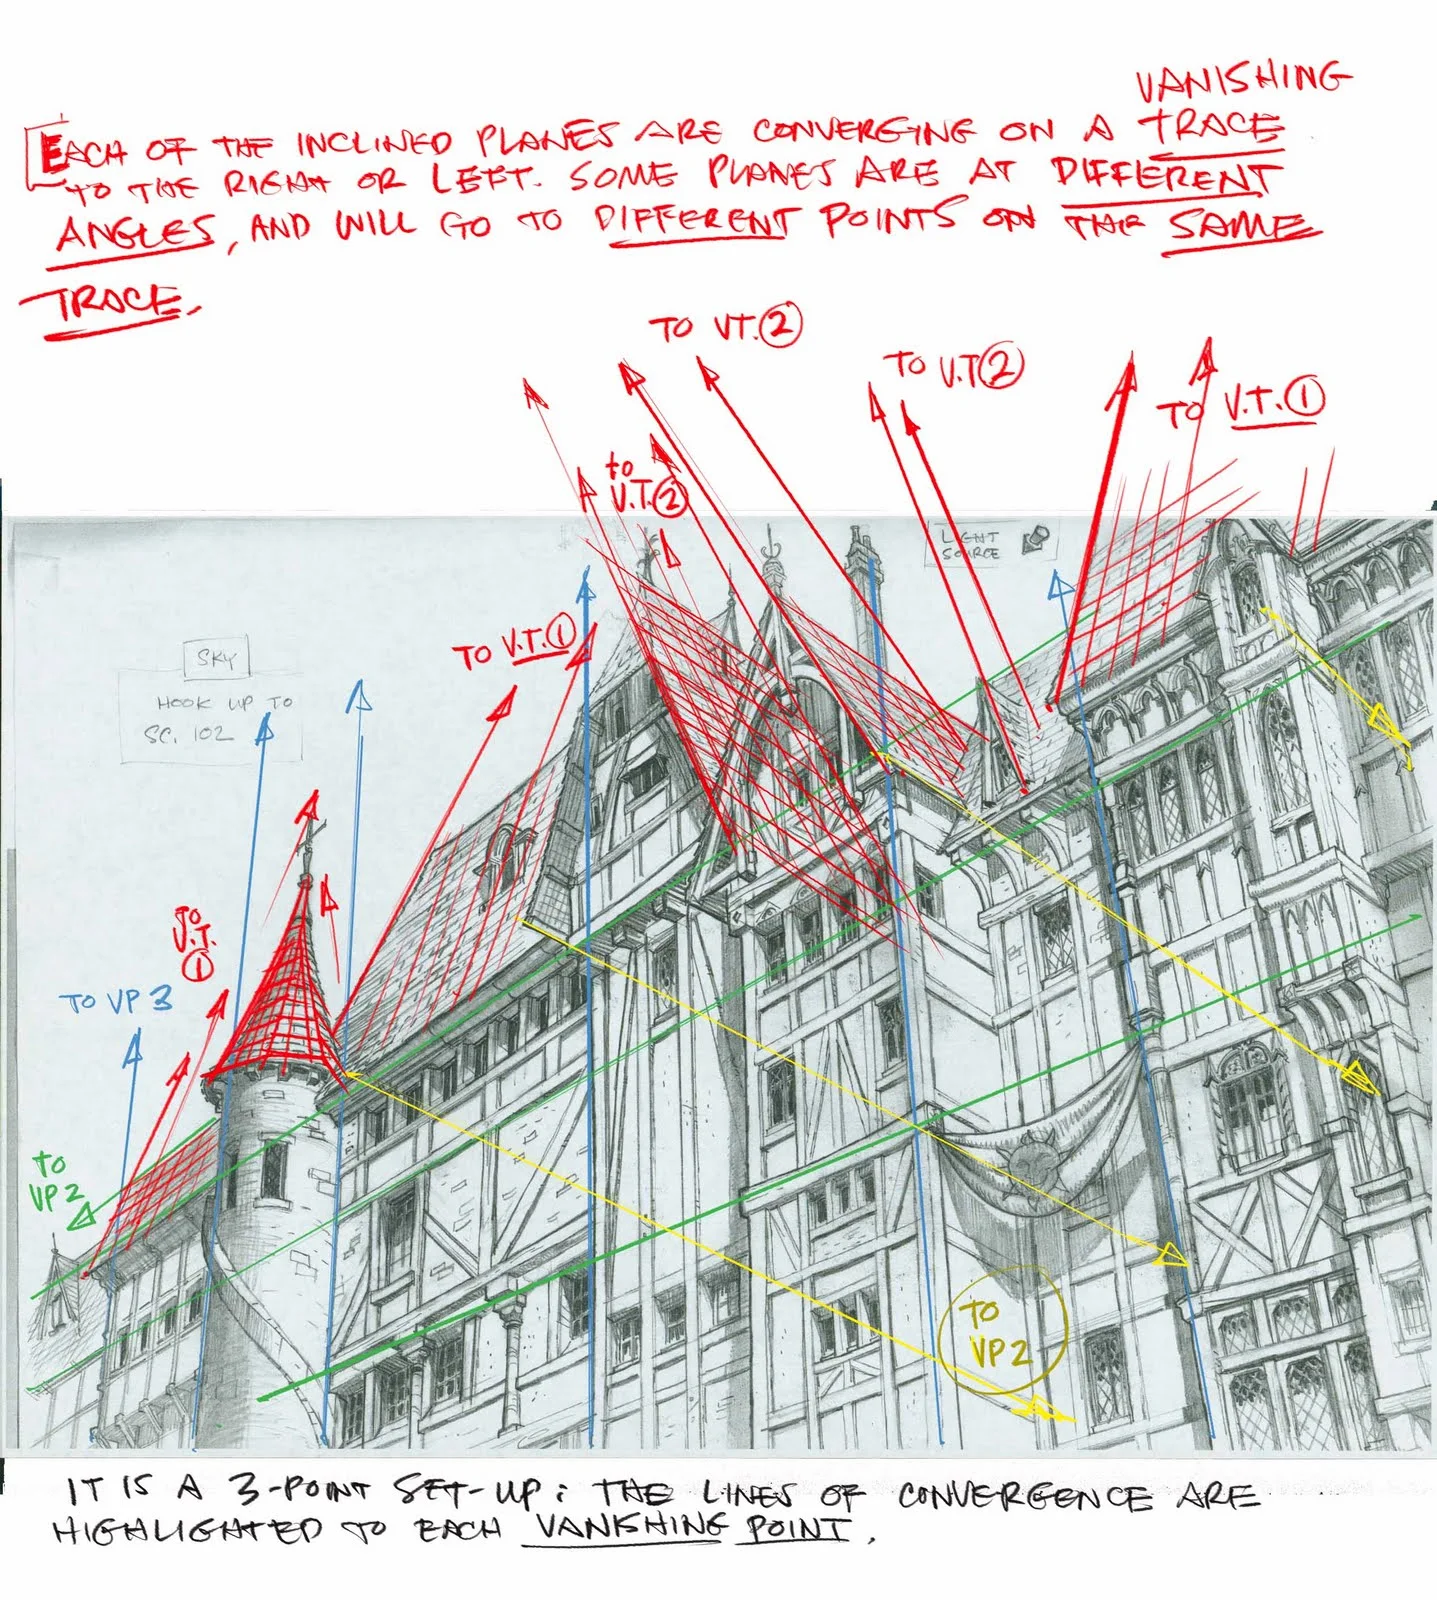 VANISHING
EACH OF THE INCLINED PLANES ARE CONVERGING ON A TRACE
TO THE RIGHT OR LEFT. SOME PLANES ARE AT DIFFERENT
ANGLES, AND WILL GO TO DIFFERENT POINTS ON THE SAME
TRACE.
TO VT. 2
TO V.T 2
TO V.T. 1
to
V.T. 2
LIGHT
SOURCE
TO V.T. 1
SKY
HOOK UP TO
SC. 102
TO
V.T.
1
TO VP 3
TO
VP 2
TO
VP 2
IT IS A 3-POINT SET-UP: THE LINES OF CONVERGENCE ARE
HIGHLIGHTED TO EACH VANISHING POINT.